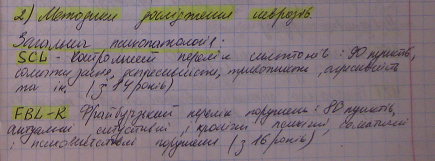 2) Методики дослідження неврозів.
Загальна психопатологія:
SCL - контрольний перелік симптомів: 90 пунктів,
соматизація, депресивність, тривожність, агресивність
та ін. (з 14 років)
FBL-R Фрайбурзький перелік порушень: 80 пунктів,
актуальні ситуативні, і хронічні психічні, соматичні
і психосоматичні порушення (з 16 років)